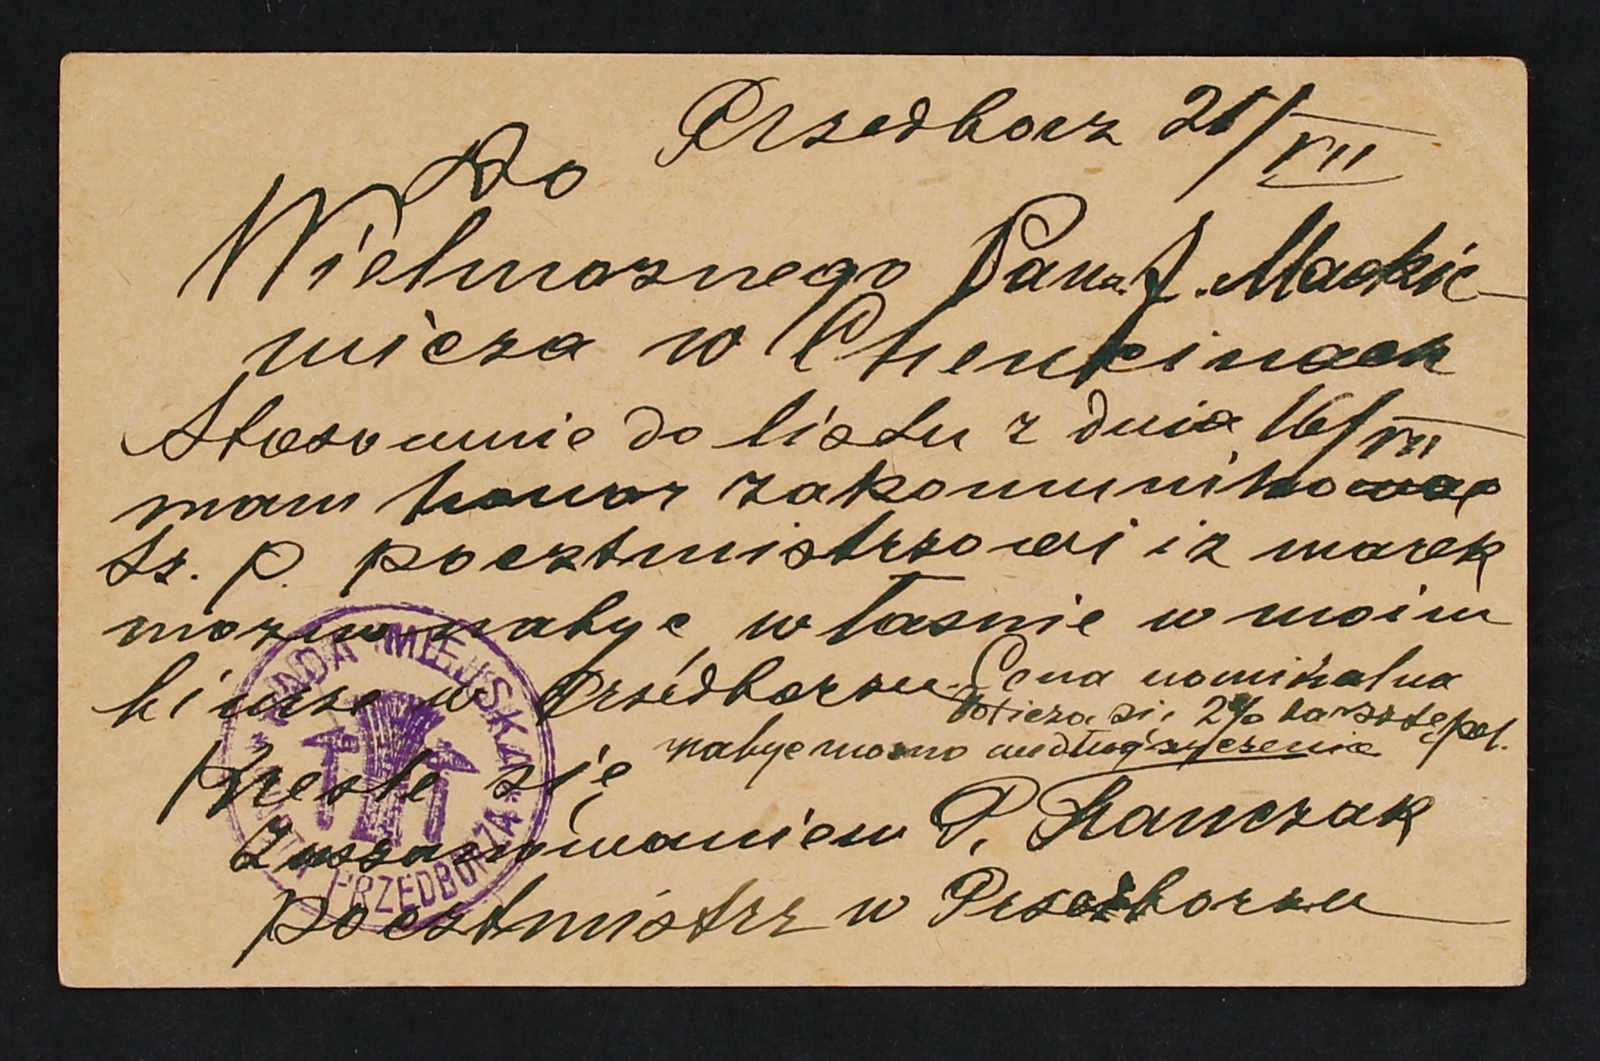 Przedborz 21/VII
Do
Wielmoznego Pana J. Mackie-
wicza w Chencinach
Stosownie do listu z dnia 16/VII
mam honor zakomunikowac
Sz. P. pocztmistrzowi iz marek
mozno nabyc własnie w moim
biurze w Przedborzu. Cena nominalna
2%
nabyc mozno według zyczenia
Kresle się
Z uszanowaniem P. Stanczak
pocztmistrz w Przedborzu
MIEJSKA
PRZEDBORZA